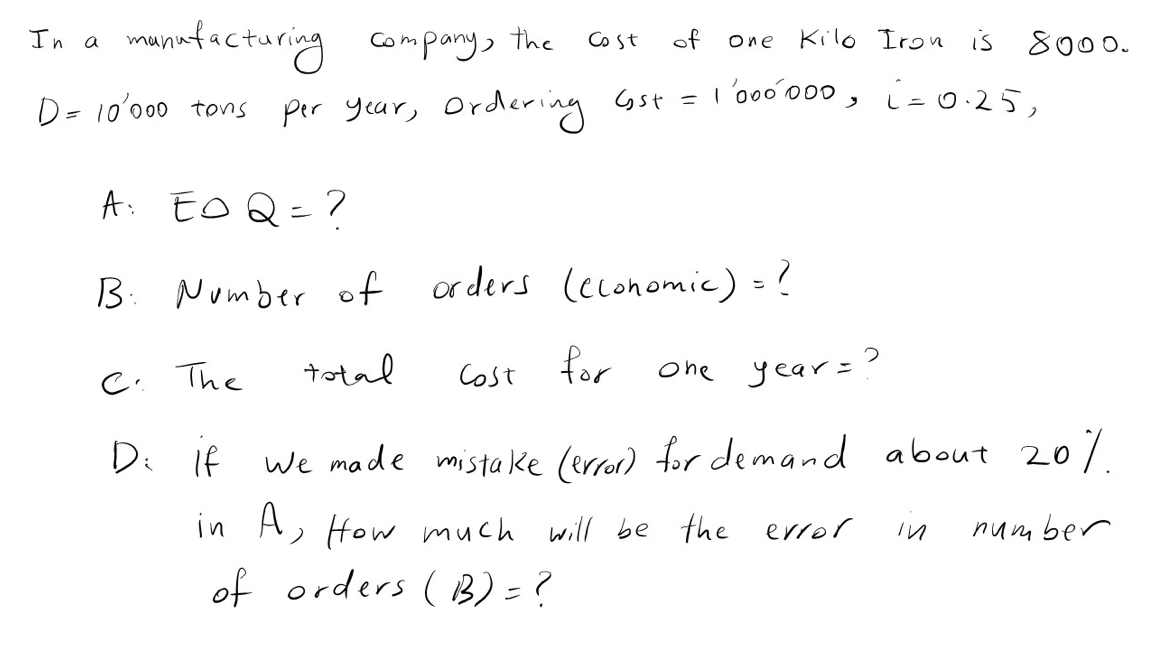 In a manufacturing company, the cost of one Kilo Iron is 8000.
D= 10'000 tons per year, ordering Cost = 1'000'000, i=0.25,
A: EOQ=?
B: Number of orders (economic) =?
C: The total cost for one year=?
D: if we made mistake (error) for demand about 20%.
in A, How much will be the error in number
of orders (B)=?